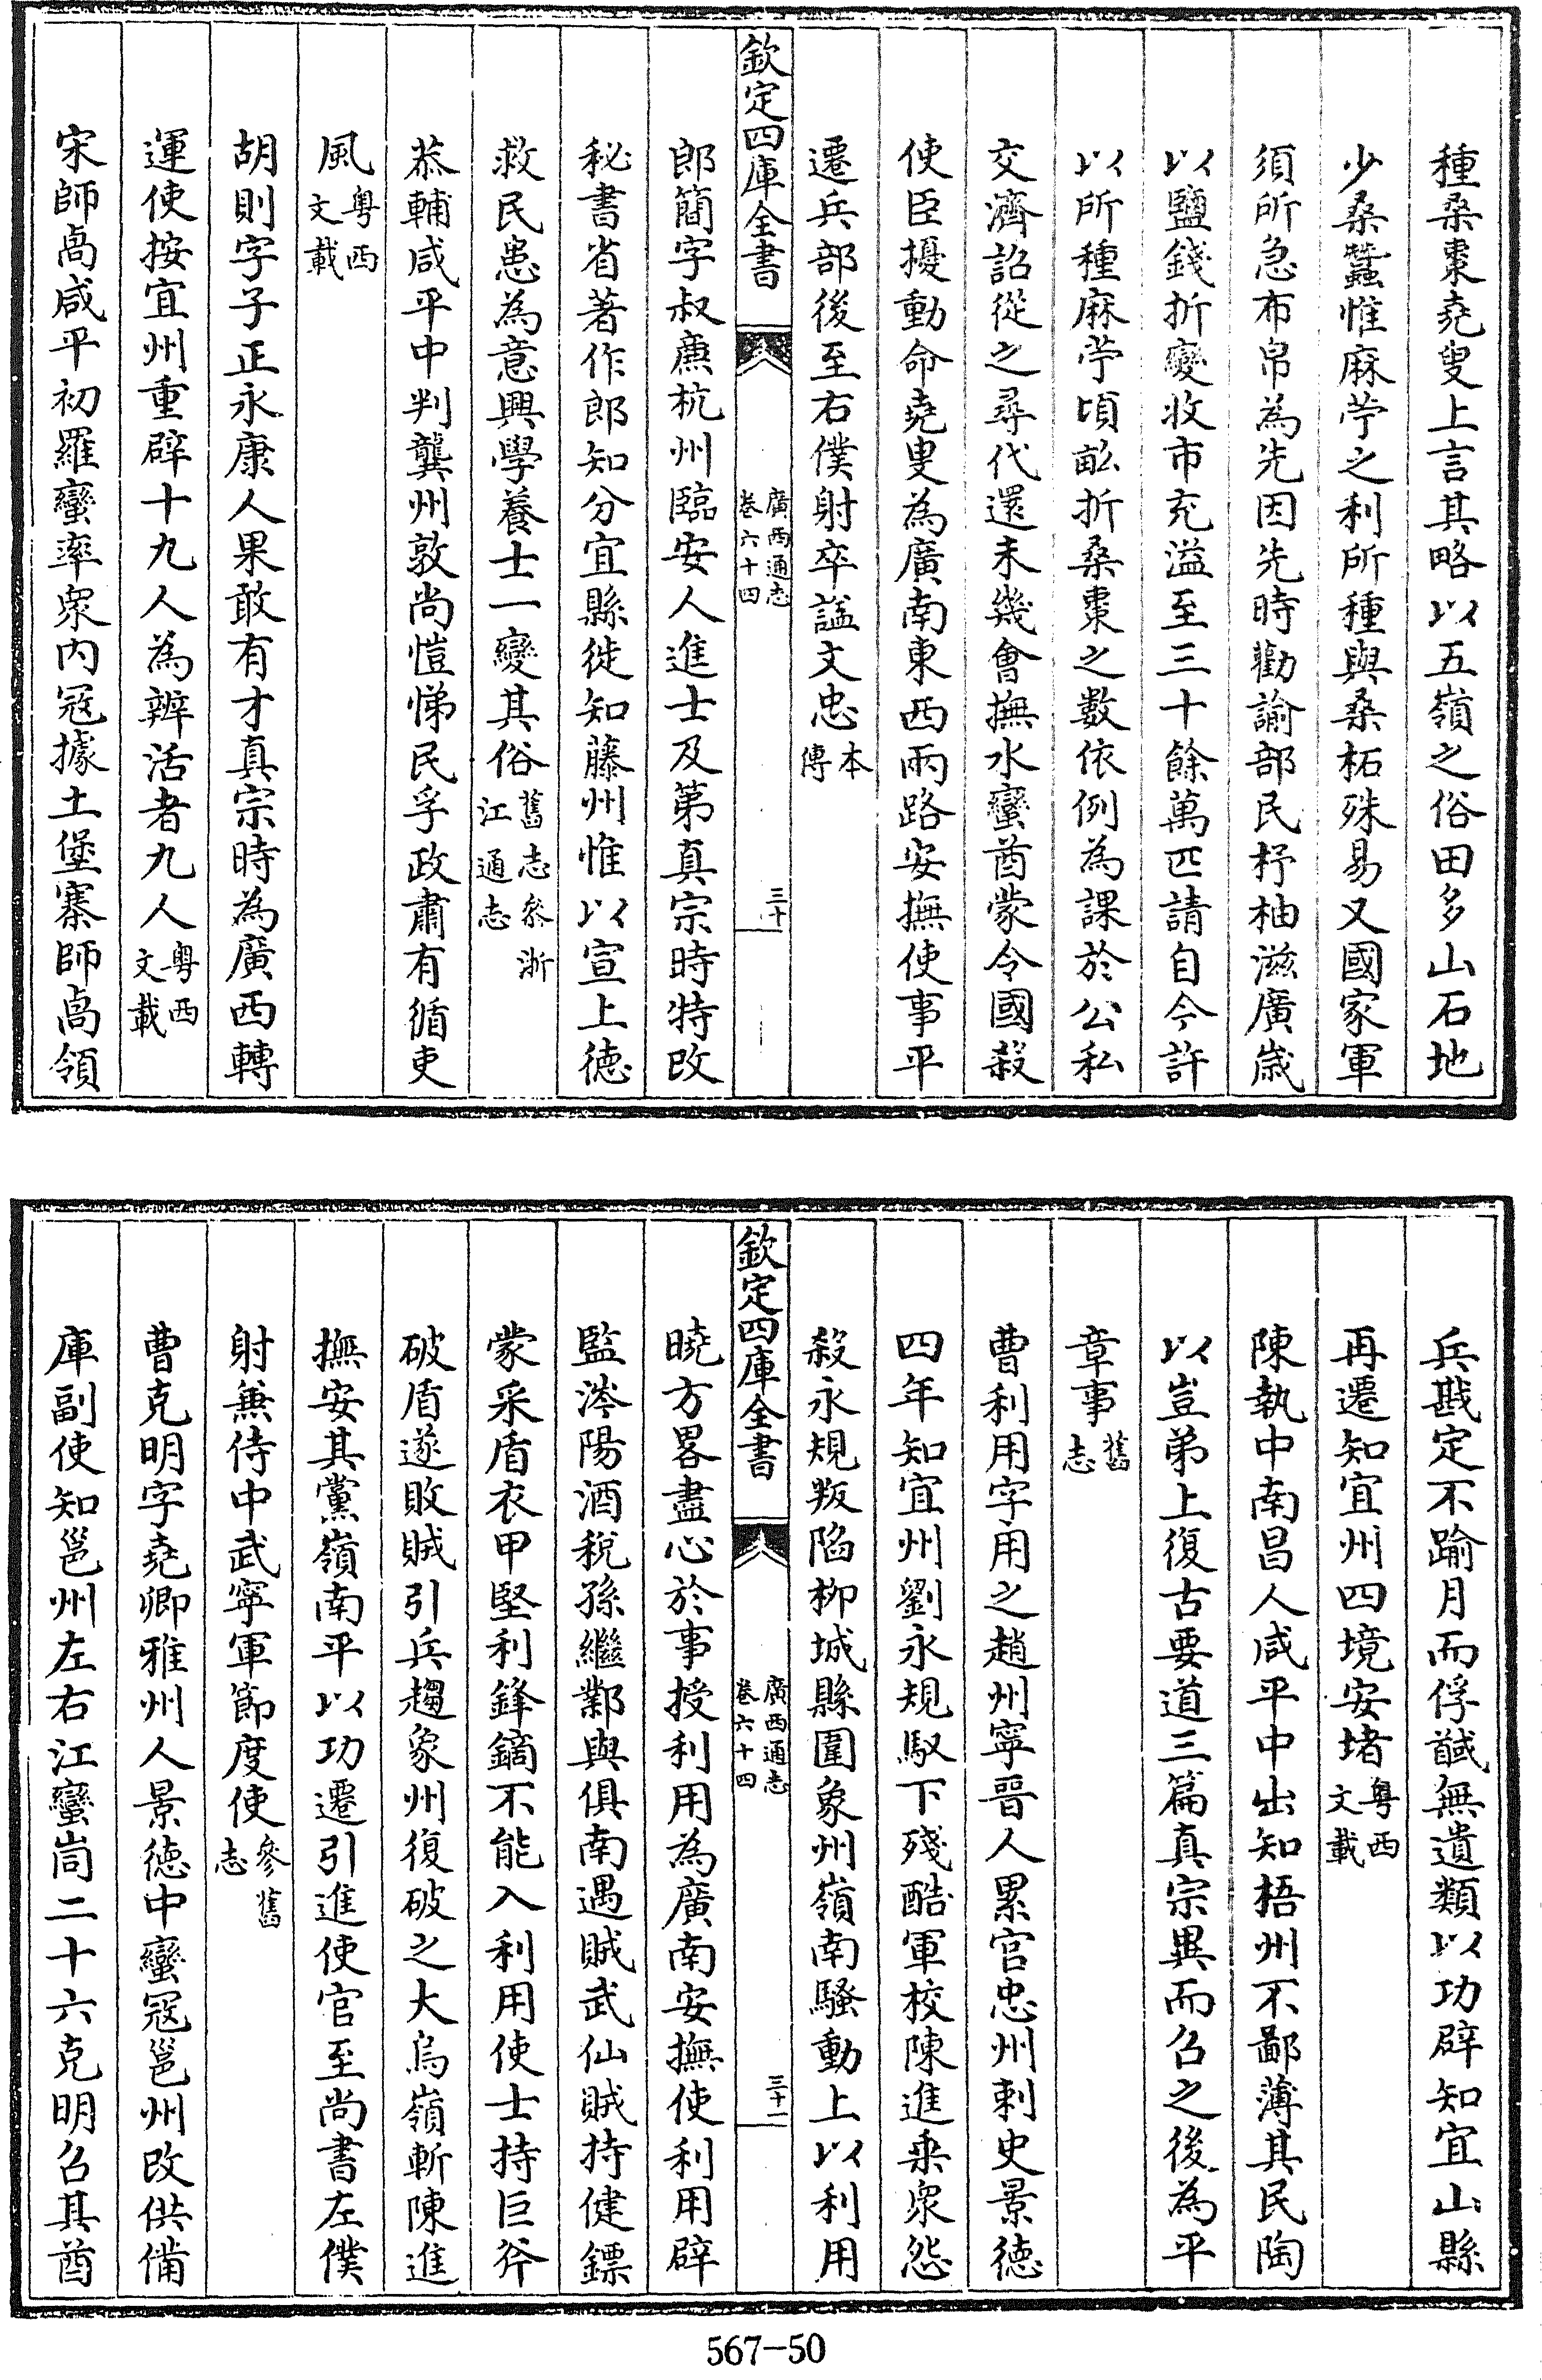 種桑棗堯叟上言其略以五嶺之俗田多山石地
少桑蠶惟麻苧之利所種與桑柘殊易又國家軍
須所急布帛為先因先時勸諭部民杼柚滋廣歳
以鹽錢折變收市充溢至三十餘萬匹請自今許
以所種麻苧頃畝折桑棗之數依例為課於公私
交濟詔從之尋代還未幾會撫水蠻酋蒙令國殺
使臣擾動命堯叟為廣南東西兩路安撫使事平
遷兵部後至右僕射卒諡文忠本傳
欽定四庫全書 廣西通志卷六十四 三十
郎簡字叔廉杭州臨安人進士及第真宗時特改
秘書省著作郎知分宜縣徙知藤州惟以宣上徳
救民患為意興學養士一變其俗舊志參浙江通志
恭輔咸平中判龔州敦尚愷悌民孚政肅有循吏
風粤西文載
胡則字子正永康人果敢有才真宗時為廣西轉
運使按宜州重辟十九人為辨活者九人粤西文載
宋師卨咸平初羅蠻率衆內冦據土堡寨師卨領
兵戡定不踰月而俘馘無遺類以功辟知宜山縣
再遷知宜州四境安堵粤西文載
陳執中南昌人咸平中出知梧州不鄙薄其民陶
以豈弟上復古要道三篇真宗異而召之後為平
章事舊志
曹利用字用之趙州寧晉人累官忠州刺史景徳
四年知宜州劉永規馭下殘酷軍校陳進乘衆怨
殺永規叛陷柳城縣圍象州嶺南騷動上以利用
欽定四庫全書 廣西通志卷六十四 三十一
曉方畧盡心於事授利用為廣南安撫使利用辟
監涔陽酒稅孫繼鄴與俱南遇賊武仙賊持健鏢
蒙采盾衣甲堅利鋒鏑不能入利用使士持巨斧
破盾遂敗賊引兵趨象州復破之大烏嶺斬陳進
撫安其黨嶺南平以功遷引進使官至尚書左僕
射兼侍中武寧軍節度使參舊志
曹克明字堯卿雅州人景徳中蠻冦邕州改供備
庫副使知邕州左右江蠻峝二十六克明召其酋
567-50